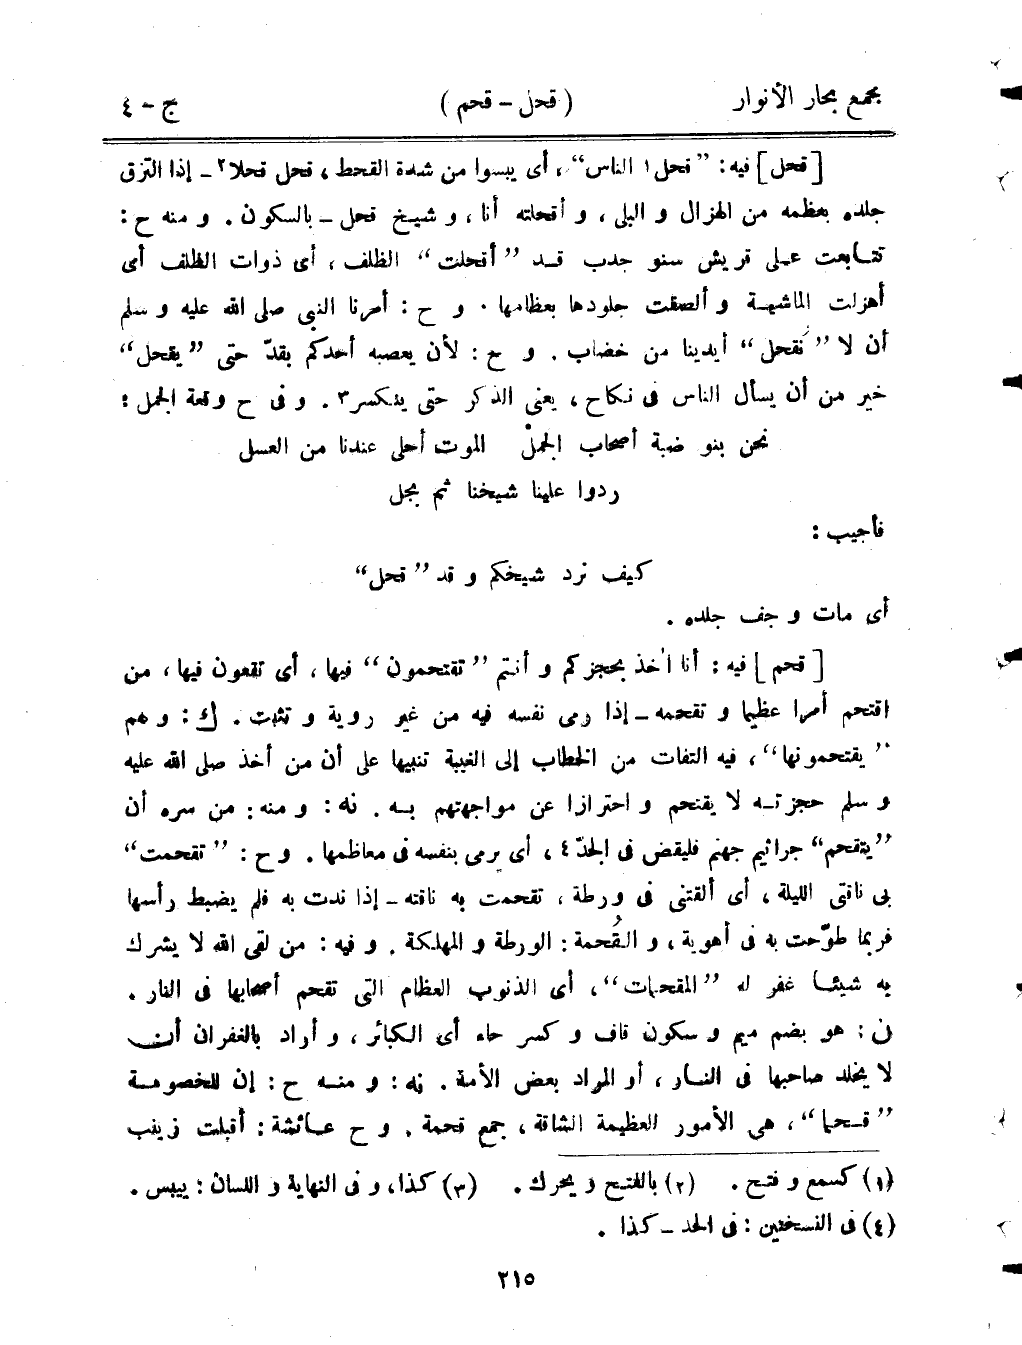 مجمع بحار الأنوار (قحل - قحم) ج - ٤
[قحل] فيه: ”قحل١ الناس“، أى يبسوا من شدة القحط، قحل قحلا٢ ــ إذا التزق
جلده بعظمه من الهزال و البلى، و أقحلته أنا، و شيخ قحل ــ بالسكون. و منه ح:
تتابعت على قريش سنو جدب قد ”أقحلت“ الظلف، أى ذوات الظلف أى
أهزلت الماشية و ألصقت جلودها بعظامها. و ح: أمرنا النبى صلى الله عليه و سلم
أن لا ”نُقحل“ أيدينا من خضاب. و ح: لأن يعصبه أحدكم بقدّ حتى ”يقحل“
خير من أن يسأل الناس فى نكاح، يعنى الذكر حتى ينكسر٣. و فى ح وقعة الجمل:
نحن بنو ضبة أصحاب الجملْ الموت أحلى عندنا من العسل
ردوا علينا شيخنا ثم بجل
فأجيب:
كيف نرد شيخكم و قد ”قحل“
أى مات و جف جلده.
[قحم] فيه: أنا اٰخذ بحجزكم و أنتم ”تقتحمون“ فيها، أى تقعون فيها، من
اقتحم أمرا عظيما و تقحمه ــ إذا رمى نفسه فيه من غير روية و تثبت. ك: و هم
”يقتحمونها“، فيه التفات من الخطاب إلى الغيبة تنبيها على أن من أخذ صلى الله عليه
و سلم حجزته لا يقتحم و احترازا عن مواجهتهم به. نه: و منه: من سره أن
”يتقحم“ جراثيم جهنم فليقض فى الجدّ٤، أى يرمى بنفسه فى معاظمها. و ح: ”تقحمت“
بى ناقتى الليلة، أى ألقتنى فى ورطة، تقحمت به ناقته ــ إذا ندت به فلم يضبط رأسها
فربما طوّحت به فى أهوية، و القُحمة: الورطة و المهلكة. و فيه: من لقى الله لا يشرك
به شيئا غفر له ”المقحمات“، أى الذنوب العظام التى تقحم أصحابها فى النار.
ن: هو بضم ميم و سكون قاف و كسر حاء أى الكبائر، و أراد بالغفران أن
لا يخلد صاحبها فى النار، أو المراد بعض الأمة. نه: و منه ح: إن للخصومة
”قحما“، هى الأمور العظيمة الشاقة، جمع قحمة. و ح عائشة: أقبلت زينب
(١) كسمع و فتح. (٢) بالفتح و يحرك. (٣) كذا، و فى النهاية و اللسان: ييبس.
(٤) فى النسختين: فى الحد ــ كذا.
٢١٥